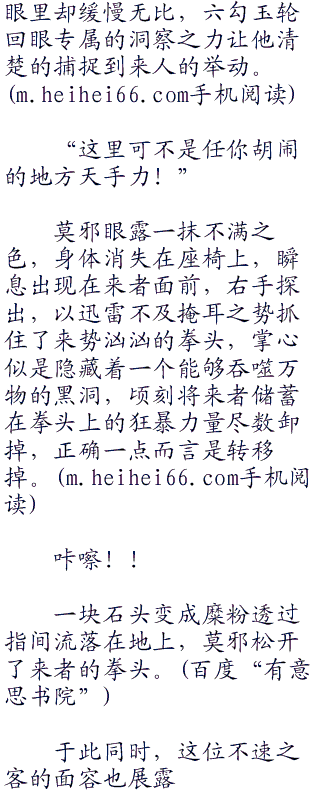 眼里却缓慢无比，六勾玉轮
回眼专属的洞察之力让他清
楚的捕捉到来人的举动。
(m.heihei66.com手机阅读)
“这里可不是任你胡闹
的地方天手力！”
莫邪眼露一抹不满之
色，身体消失在座椅上，瞬
息出现在来者面前，右手探
出，以迅雷不及掩耳之势抓
住了来势汹汹的拳头，掌心
似是隐藏着一个能够吞噬万
物的黑洞，顷刻将来者储蓄
在拳头上的狂暴力量尽数卸
掉，正确一点而言是转移
掉。(m.heihei66.com手机阅
读)
咔嚓！！
一块石头变成糜粉透过
指间流落在地上，莫邪松开
了来者的拳头。(百度“有意
思书院”)
于此同时，这位不速之
客的面容也展露